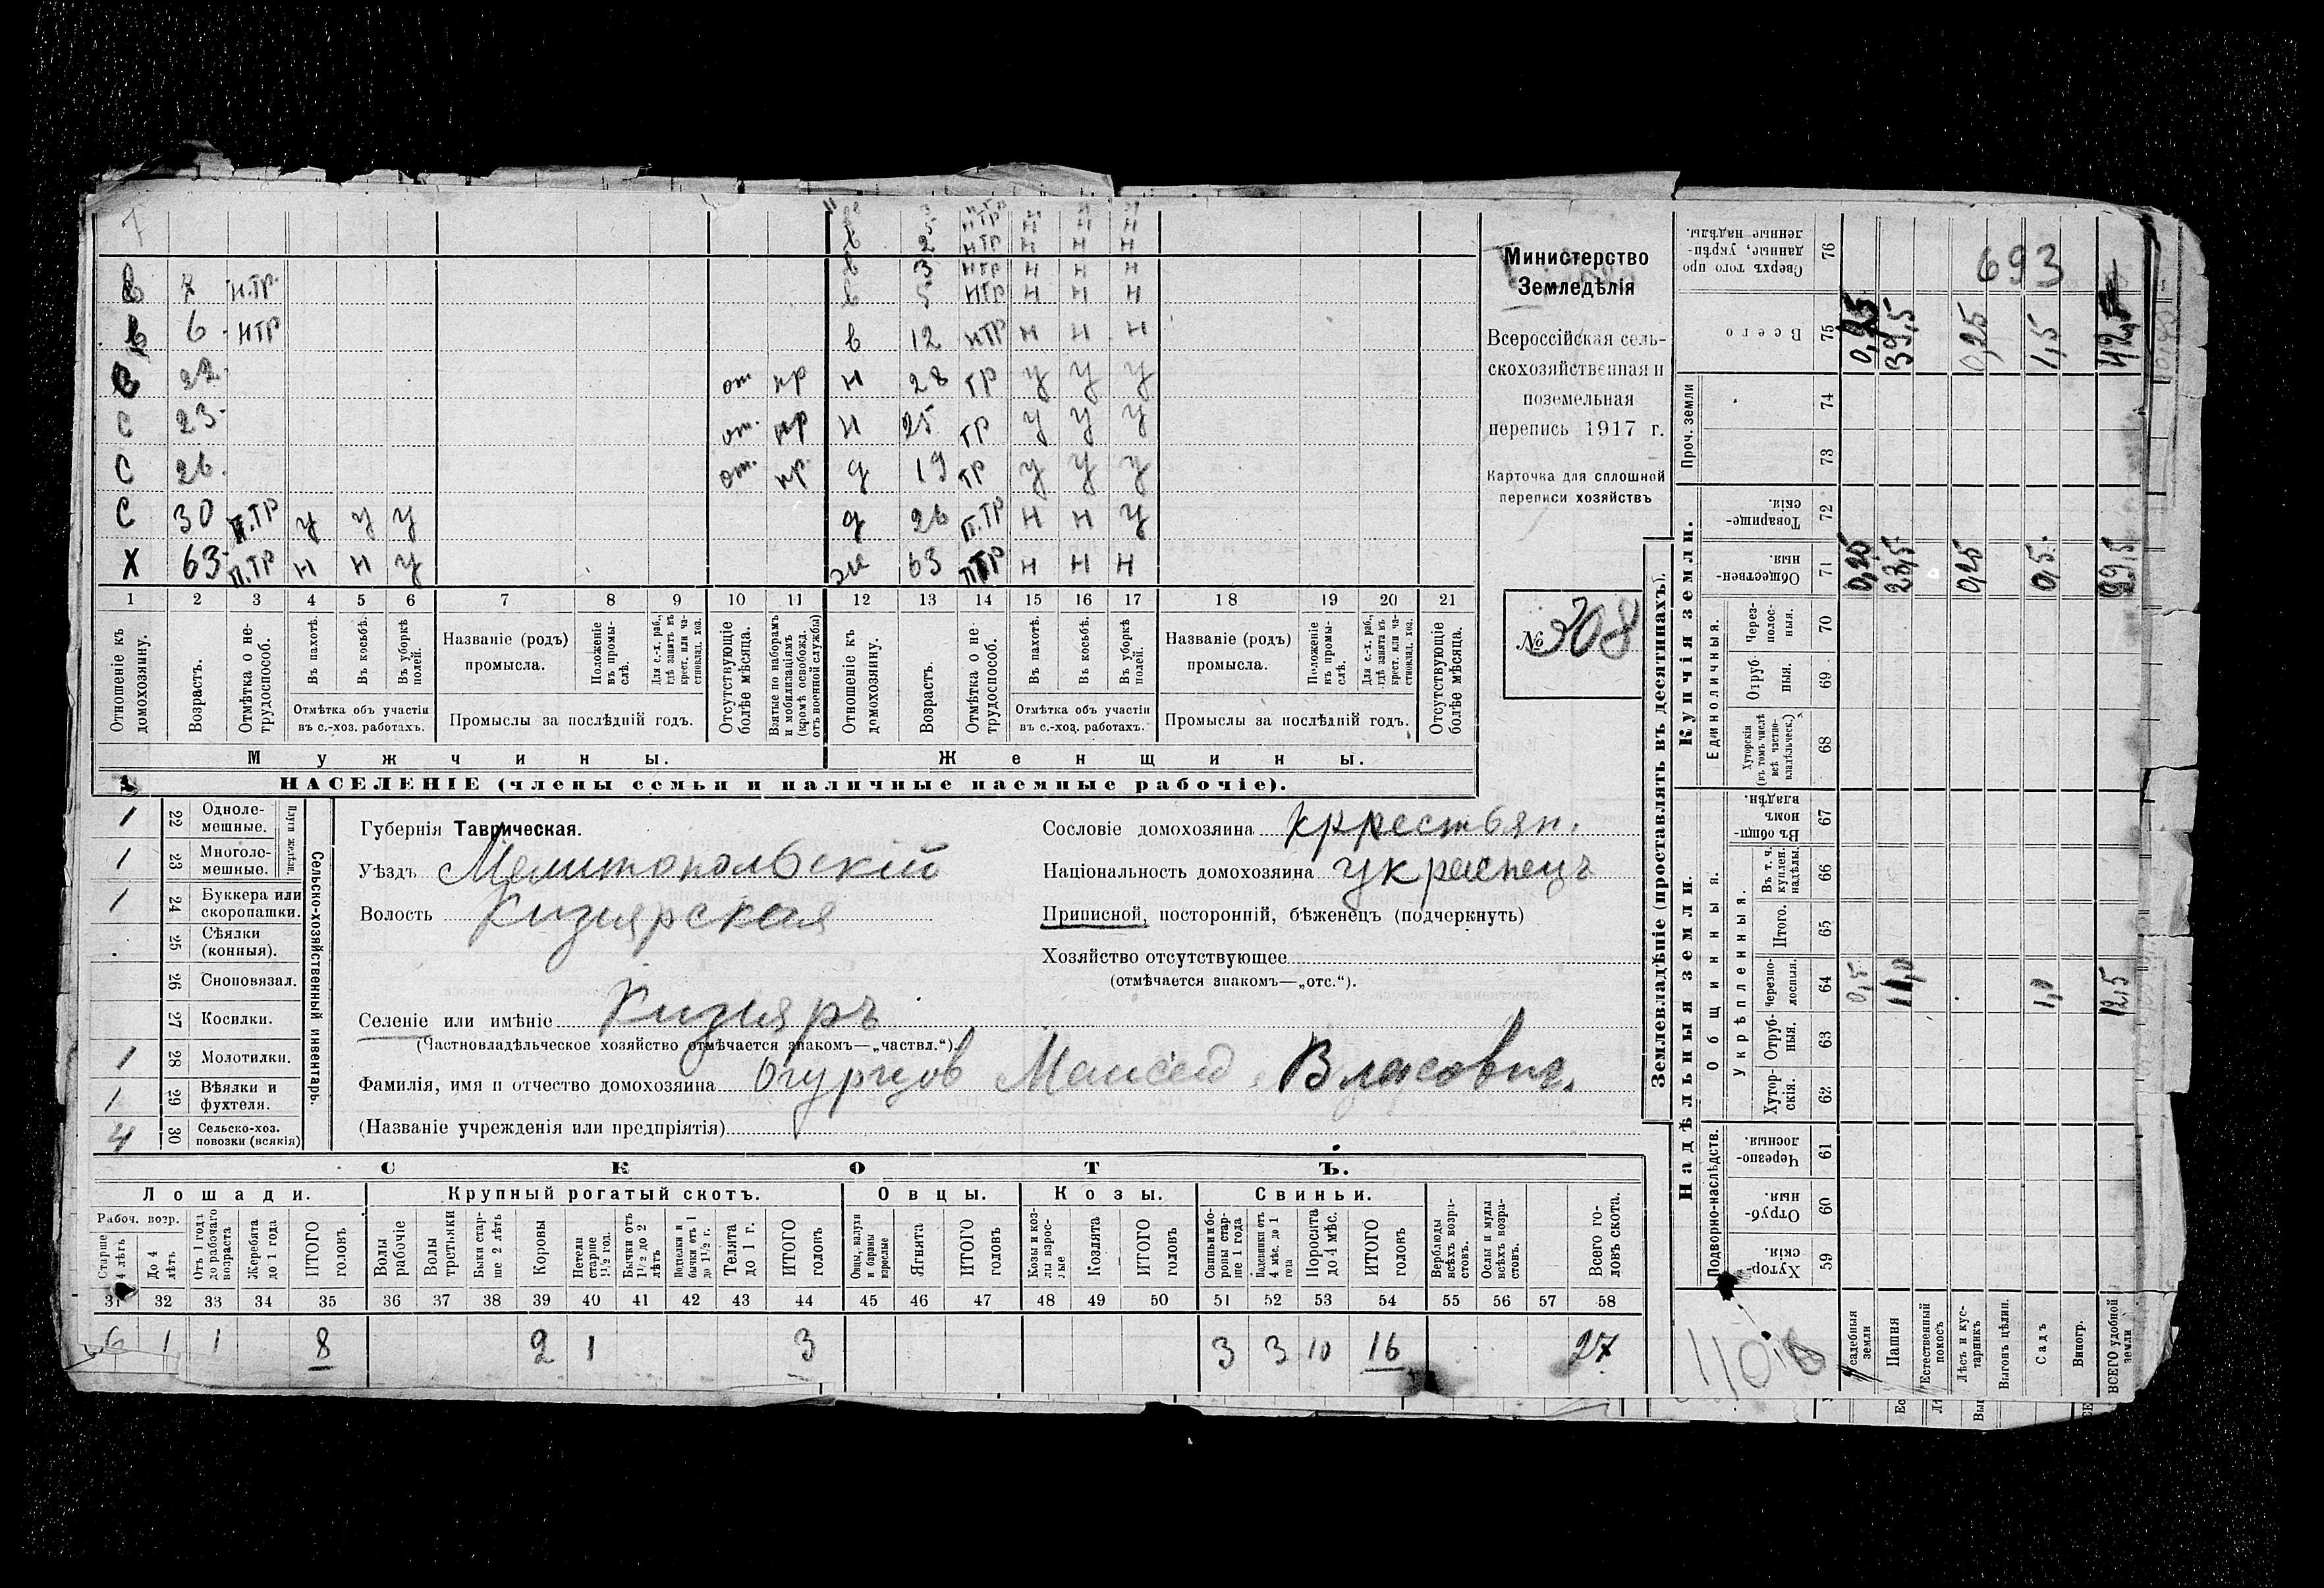 7
в 3 нтр н н н
в 5 нтр н н н
в 2 нтр н н н
в 7 н.тр. в 3 нтр н н н
в 5 нтр н н н
в 6 нтр в 12 нтр н н н
С 22 от. нр н 28 тр у у у
С 23 от. нр н 25 тр у у у
С 26. от. нр. д 19 тр у у у
С 30 п.тр у у у д 26 п.тр н н у
Х 63 п.тр н н у ж 63 птр н н н
1 2 3 4 5 6 7 8 9 10 11 12 13 14 15 16 17 18 19 20 21
Отношеніе къ домохозяину.
Возрастъ.
Отмѣтка о нетрудоспособ.
Въ пахотѣ.
Въ косьбѣ.
Въ уборкѣ полей.
Отмѣтка объ участіи въ с.-хоз. работахъ.
Названіе (родъ) промысла.
Положеніе въ промыслѣ.
Для с.-х. раб., гдѣ занятъ въ крест. или частновлад. хоз.
Промыслы за послѣдній годъ.
Отсутствующіе болѣе мѣсяца.
Взятые по наборамъ и мобилизаціямъ (кромѣ освобожд. отъ военной службы)
Отношеніе къ домохозяину.
Возрастъ.
Отмѣтка о нетрудоспособ.
Въ пахотѣ.
Въ косьбѣ.
Въ уборкѣ полей.
Отмѣтка объ участіи въ с.-хоз. работахъ.
Названіе (родъ) промысла.
Положеніе въ промыслѣ.
Для с.-х. раб., гдѣ занята въ крест. или частновлад. хоз.
Промыслы за послѣдній годъ.
Отсутствующіе болѣе мѣсяца.
Мужчины. Женщины.
НАСЕЛЕНІЕ (члены семьи и наличные наемные рабочіе).
Министерство
Земледѣлія
Всероссійская сель-
скохозяйственная и
поземельная
перепись 1917 г.
Карточка для сплошной
переписи хозяйствъ
№ 308
Сельско-хозяйственный инвентарь.
Плуги желѣзн.
1 22 Однолемешные.
1 23 Многолемешные.
1 24 Буккера или скоропашки.
25 Сѣялки (конныя).
26 Сноповязал.
27 Косилки.
1 28 Молотилки.
1 29 Вѣялки и фухтеля.
4 30 Сельско-хоз. повозки (всякія)
Губернія Таврическая.
Уѣздъ Мелитопольскій
Волость Кизиярская
Селеніе или имѣніе Кизияръ
(Частновладѣльческое хозяйство отмѣчается знакомъ—„частвл.“).
Фамилія, имя и отчество домохозяина Огурцов Моисей Власович.
(Названіе учрежденія или предпріятія)
Сословіе домохозяина крестьян.
Національность домохозяина украинецъ
Приписной, посторонній, бѣженецъ (подчеркнуть)
Хозяйство отсутствующее
(отмѣчается знакомъ—„отс.“).
СКОТЪ.
Лошади. Крупный рогатый скотъ. Овцы. Козы. Свиньи.
Рабоч. возр.
Старше 4 лѣтъ
До 4 лѣтъ
Отъ 1 года до рабочаго возраста
Жеребята до 1 года
ИТОГО головъ
Волы рабочіе
Волы третьяки
Быки старше 2 лѣтъ
Коровы
Нетели старше 1½ год.
Бычки отъ 1½ до 2 лѣтъ
Подтелки и бычки отъ 1 до 1½ г.
Телята до 1 г.
ИТОГО головъ
Овцы, валухи и бараны взрослые
Ягнята
ИТОГО головъ
Козы и козлы взрослые
Козлята
ИТОГО головъ
Свиньи и боровы старше 1 года
Подсвинки отъ 4 мѣс. до 1 года
Поросята до 4 мѣс.
ИТОГО головъ
Верблюды всѣхъ возрастовъ.
Ослы и мулы всѣхъ возрастовъ.
Всего головъ скота.
31 32 33 34 35 36 37 38 39 40 41 42 43 44 45 46 47 48 49 50 51 52 53 54 55 56 57 58
6 1 1 8 2 1 3 3 3 10 16 27
Землевладѣніе (проставлять въ десятинахъ).
Надѣльныя земли. Купчія земли. Проч. земли
Подворно-наслѣдств. Общинныя. Укрѣпленныя. Единоличныя.
59 Хуторскія.
60 Отрубныя.
61 Черезполосныя.
62 Хуторскія.
63 Отрубныя.
64 Черезполосныя.
65 Итого.
66 Въ т. ч. куплен. надѣлы.
67 Въ общинномъ владѣн.
68 Хуторскія (въ томъ числѣ всѣ частновладѣльческ.)
69 Отрубныя.
70 Черезполосныя.
71 Общественныя.
72 Товарищескія.
73
74
75 Всего
76 Сверхъ того проданные, укрѣпленные надѣлы.
садебныя земли 0,5 0,25
Пашня 11,0 23,5 39,5
Естественный покосъ
Лѣсъ и кустарникъ 0,25 0,25
Выгонъ цѣлин.
Садъ 1,0 0,5 1,5
Виногр.
ВСЕГО удобной земли 12,5 42,5
693